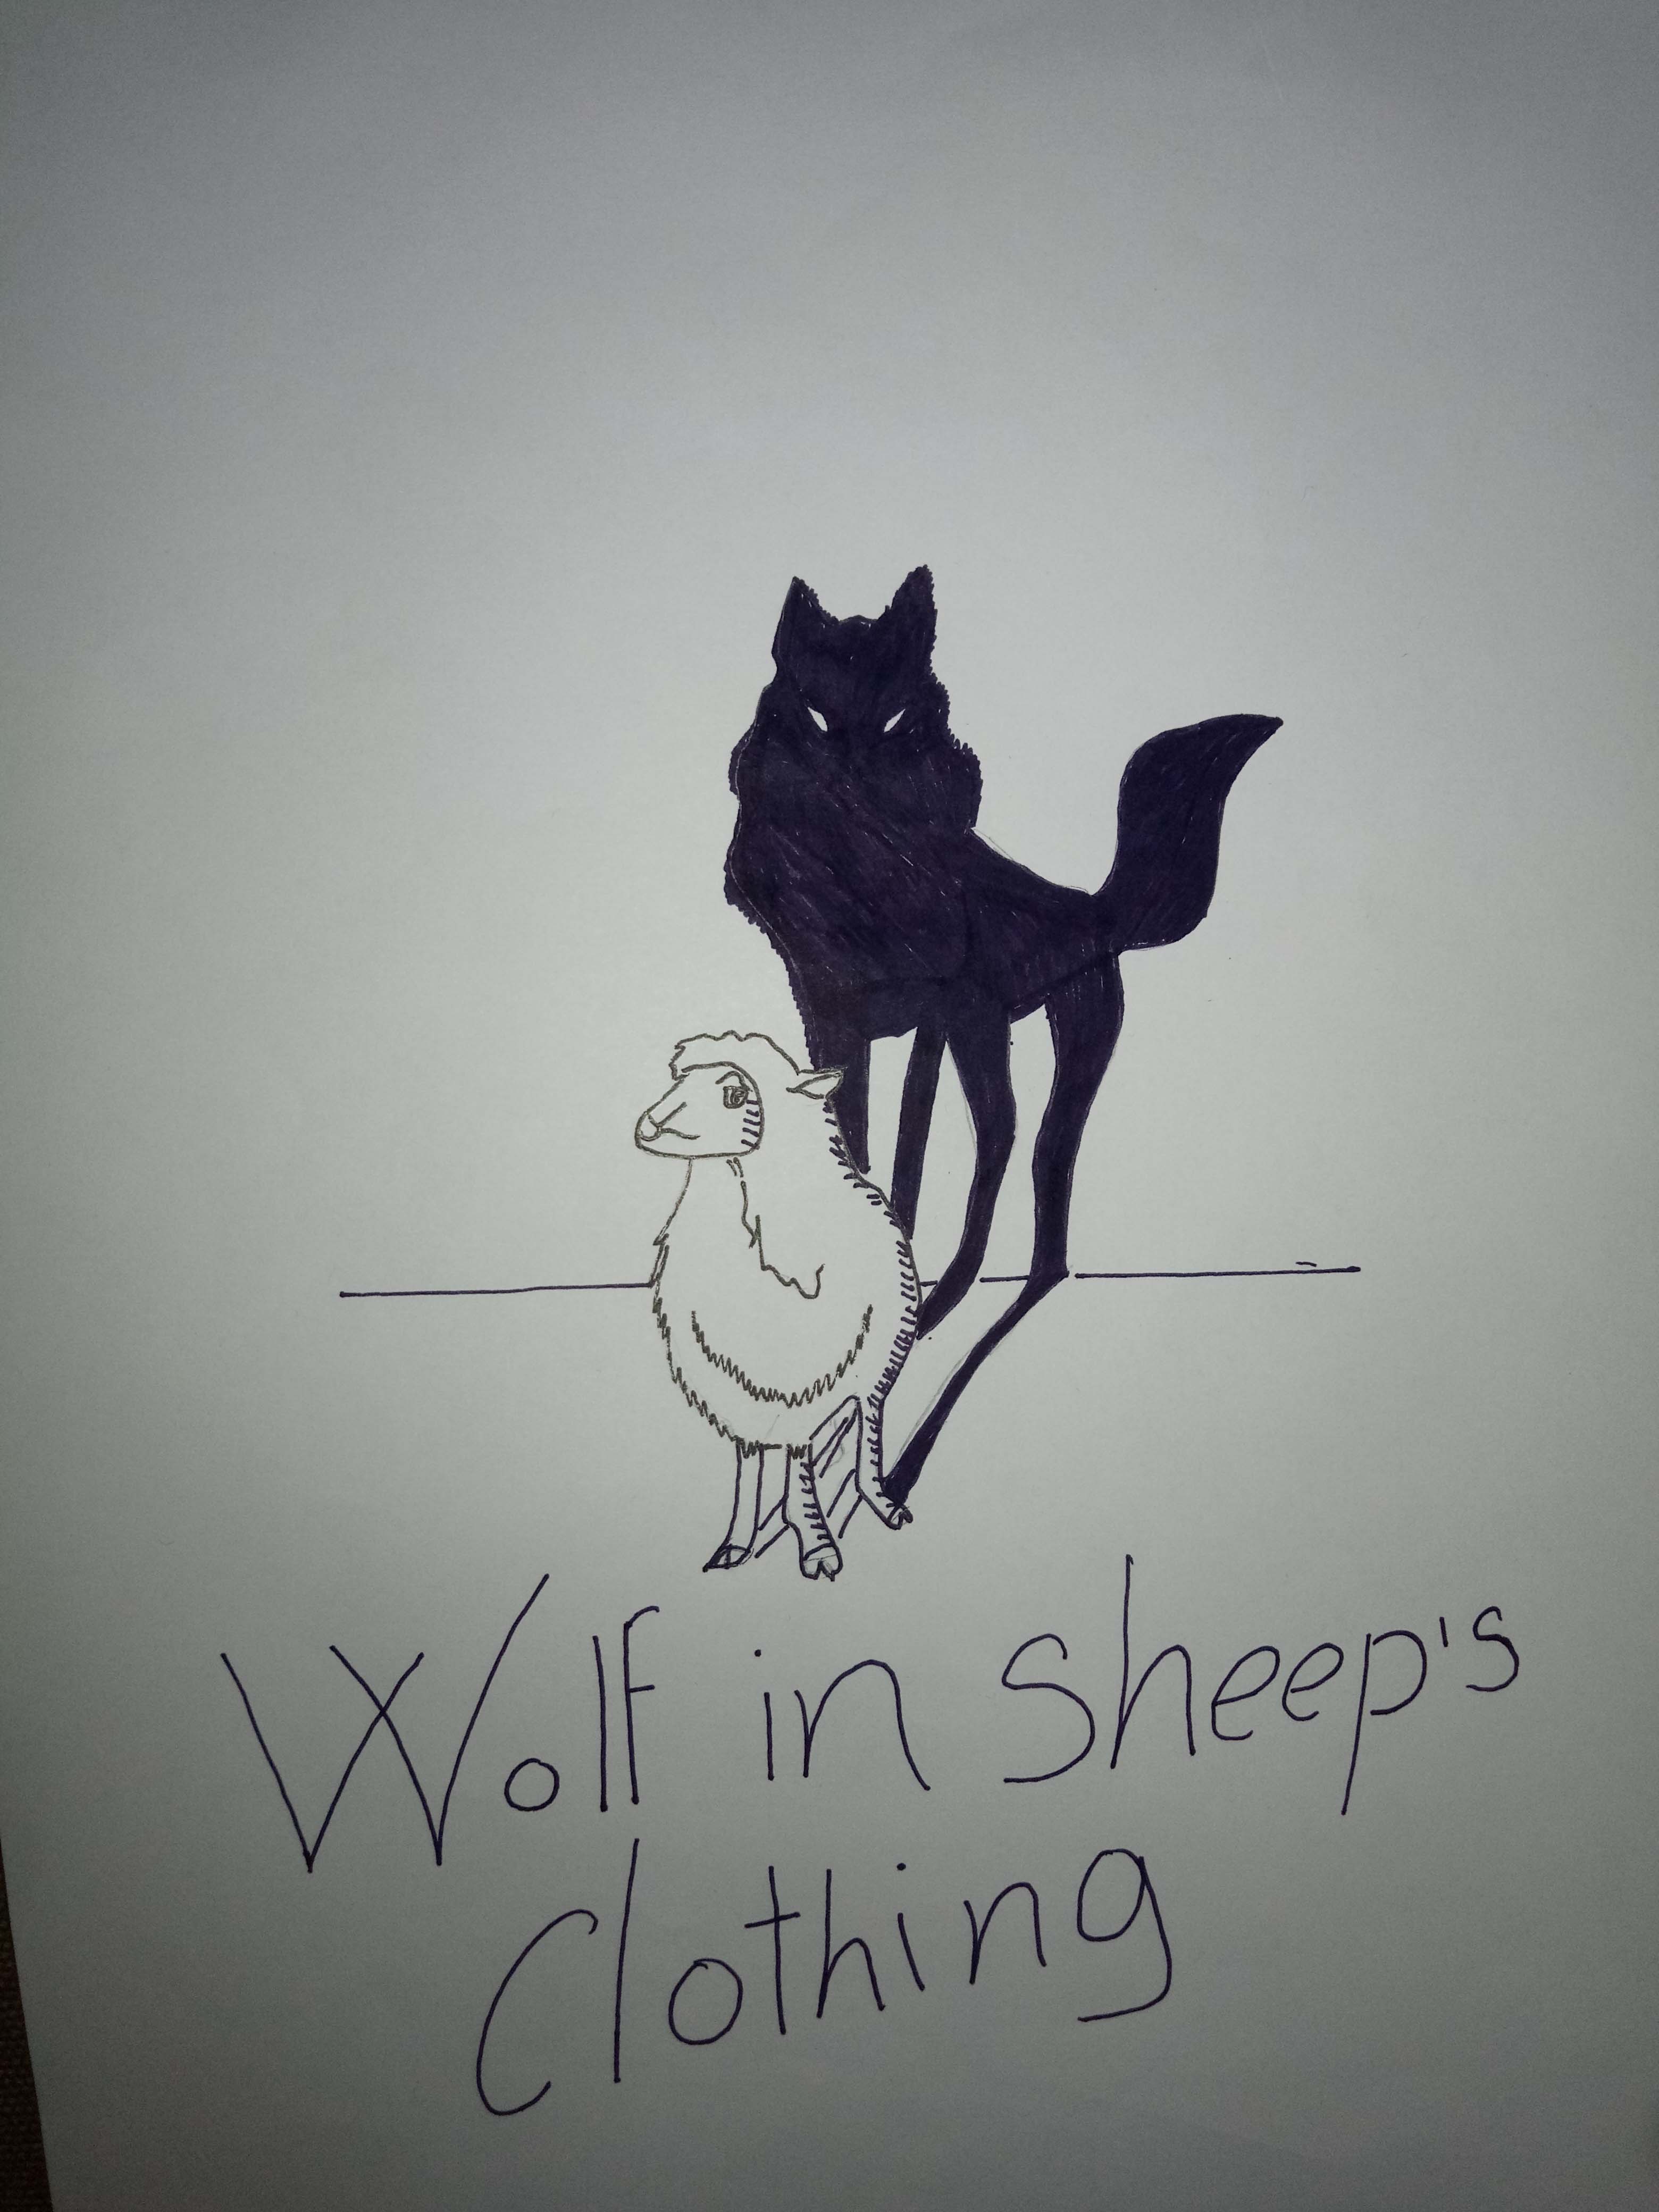 Wolf in sheep's
Clothing